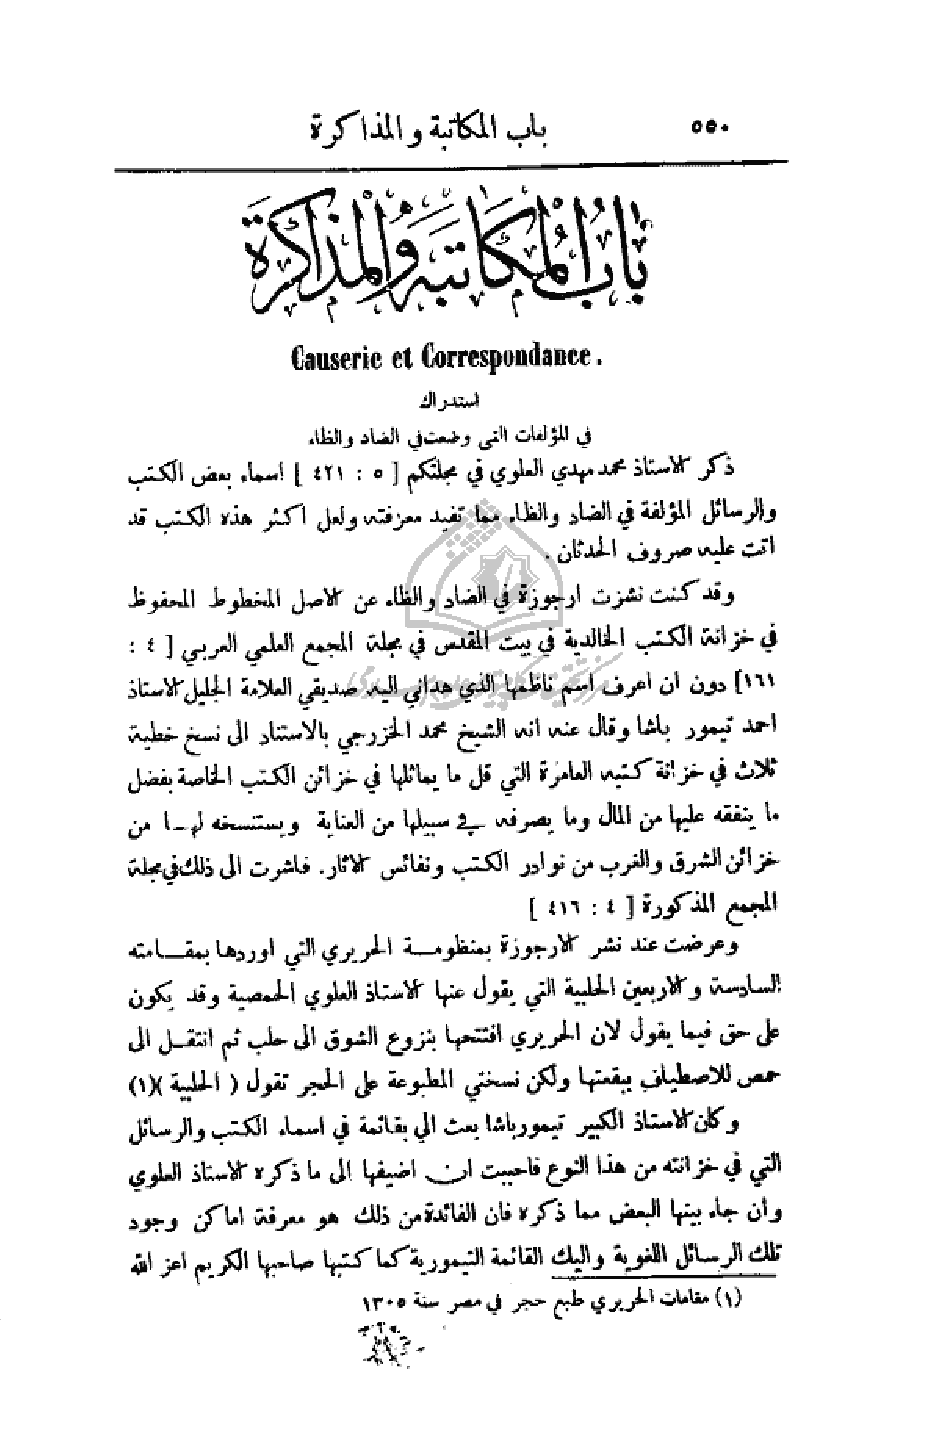 ٥٥٠ باب المكاتبة والمذاكرة
باب المكاتبة والمذاكرة
Causerie et Correspondance.
استدراك
في المؤلفات التي وضعت في الضاد والظاء
ذكر الاستاذ محمد مهدي العلوي في مجلتكم [ ٥ : ٤٢١ ] اسماء بعض الكتب
والرسائل المؤلفة في الضاد والظاء مما تفيد معرفته ولعل اكثر هذه الكتب قد
اتت عليه صروف الحدثان .
وقد كنت نشرت ارجوزة في الضاد والظاء عن الاصل المخطوط المحفوظ
في خزانة الكتب الخالدية في بيت المقدس في مجلة المجمع العلمي العربي [ ٤ :
١٦١] دون ان اعرف اسم ناظمها الذي هداني اليه صديقي العلامة الجليل الاستاذ
احمد تيمور باشا وقال عنه انه الشيخ محمد الخزرجي بالاستناد الى نسخ خطية
ثلاث في خزانة كتبه العامرة التي قل ما يماثلها في خزائن الكتب الخاصة بفضل
ما ينفقه عليها من المال وما يصرفه في سبيلها من العناية ويستنسخه لها من
خزائن الشرق والغرب من نوادر الكتب ونفائس الاثار. فاشرت الى ذلك في مجلة
المجمع المذكورة [ ٤ : ٤١٦ ]
وعرضت عند نشر الارجوزة بمنظومة الحريري التي اوردها بمقامته
السادسة والاربعين الحلبية التي يقول عنها الاستاذ العلوي الحمصية وقد يكون
على حق فيما يقول لان الحريري افتتحها بنزوع الشوق الى حلب ثم انتقل الى
حمص للاصطياف ببقعتها ولكن نسختي المطبوعة على الحجر تقول ( الحلبية )(١)
وكان الاستاذ الكبير تيمور باشا بعث الي بقائمة في اسماء الكتب والرسائل
التي في خزانته من هذا النوع فاحببت ان اضيفها الى ما ذكره الاستاذ العلوي
وان جاء بينها البعض مما ذكره فان الفائدة من ذلك هو معرفة اماكن وجود
تلك الرسائل اللغوية واليك القائمة التيمورية كما كتبها صاحبها الكريم اعز الله
(١) مقامات الحريري طبع حجر في مصر سنة ١٣٠٥